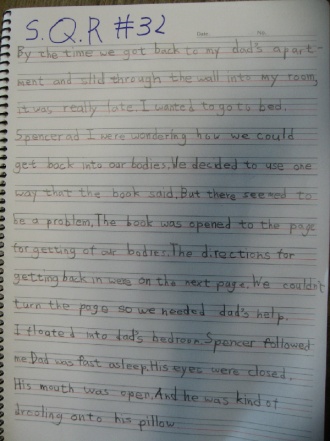 S.Q.R #32
Date No.
By the time we got back to my dad's apart-
ment and slid through the wall into my room,
it was really late. I wanted to go to bed.
Spencer ad I were wondering how we could
get back into our bodies. We decided to use one
way that the book said. But there seemed to
be a problem. The book was opened to the page
for getting of our bodies. The directions for
getting back in were on the next page. We couldn't
turn the page so we needed dad's help.
I floated into dad's bedroom. Spencer followed
me. Dad was fast asleep. His eyes were closed.
His mouth was open. And he was kind of
drooling onto his pillow